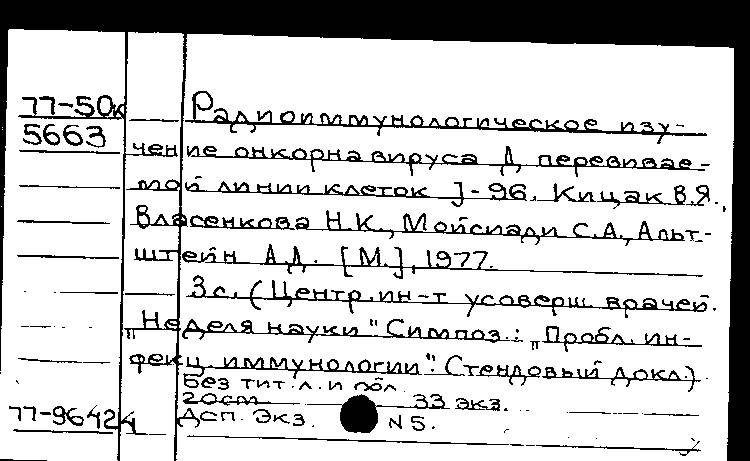 77-50к
5663
Радиоиммунологическое изу-
чение онкорнавируса Д перевивае-
мой линии клеток J-96. Кицак В.Я.,
Власенкова Н.К., Мойсиади С.А., Альт-
штейн А.Д. [М.], 1977.
3с. (Центр. ин-т усоверш. врачей.
"Неделя науки" Симпоз.: "Пробл. ин-
фекц. иммунологии". Стендовый докл.)
Без тит. л. и обл.
20cm 33 экз.
77-96424 Дсп. Экз. N5.